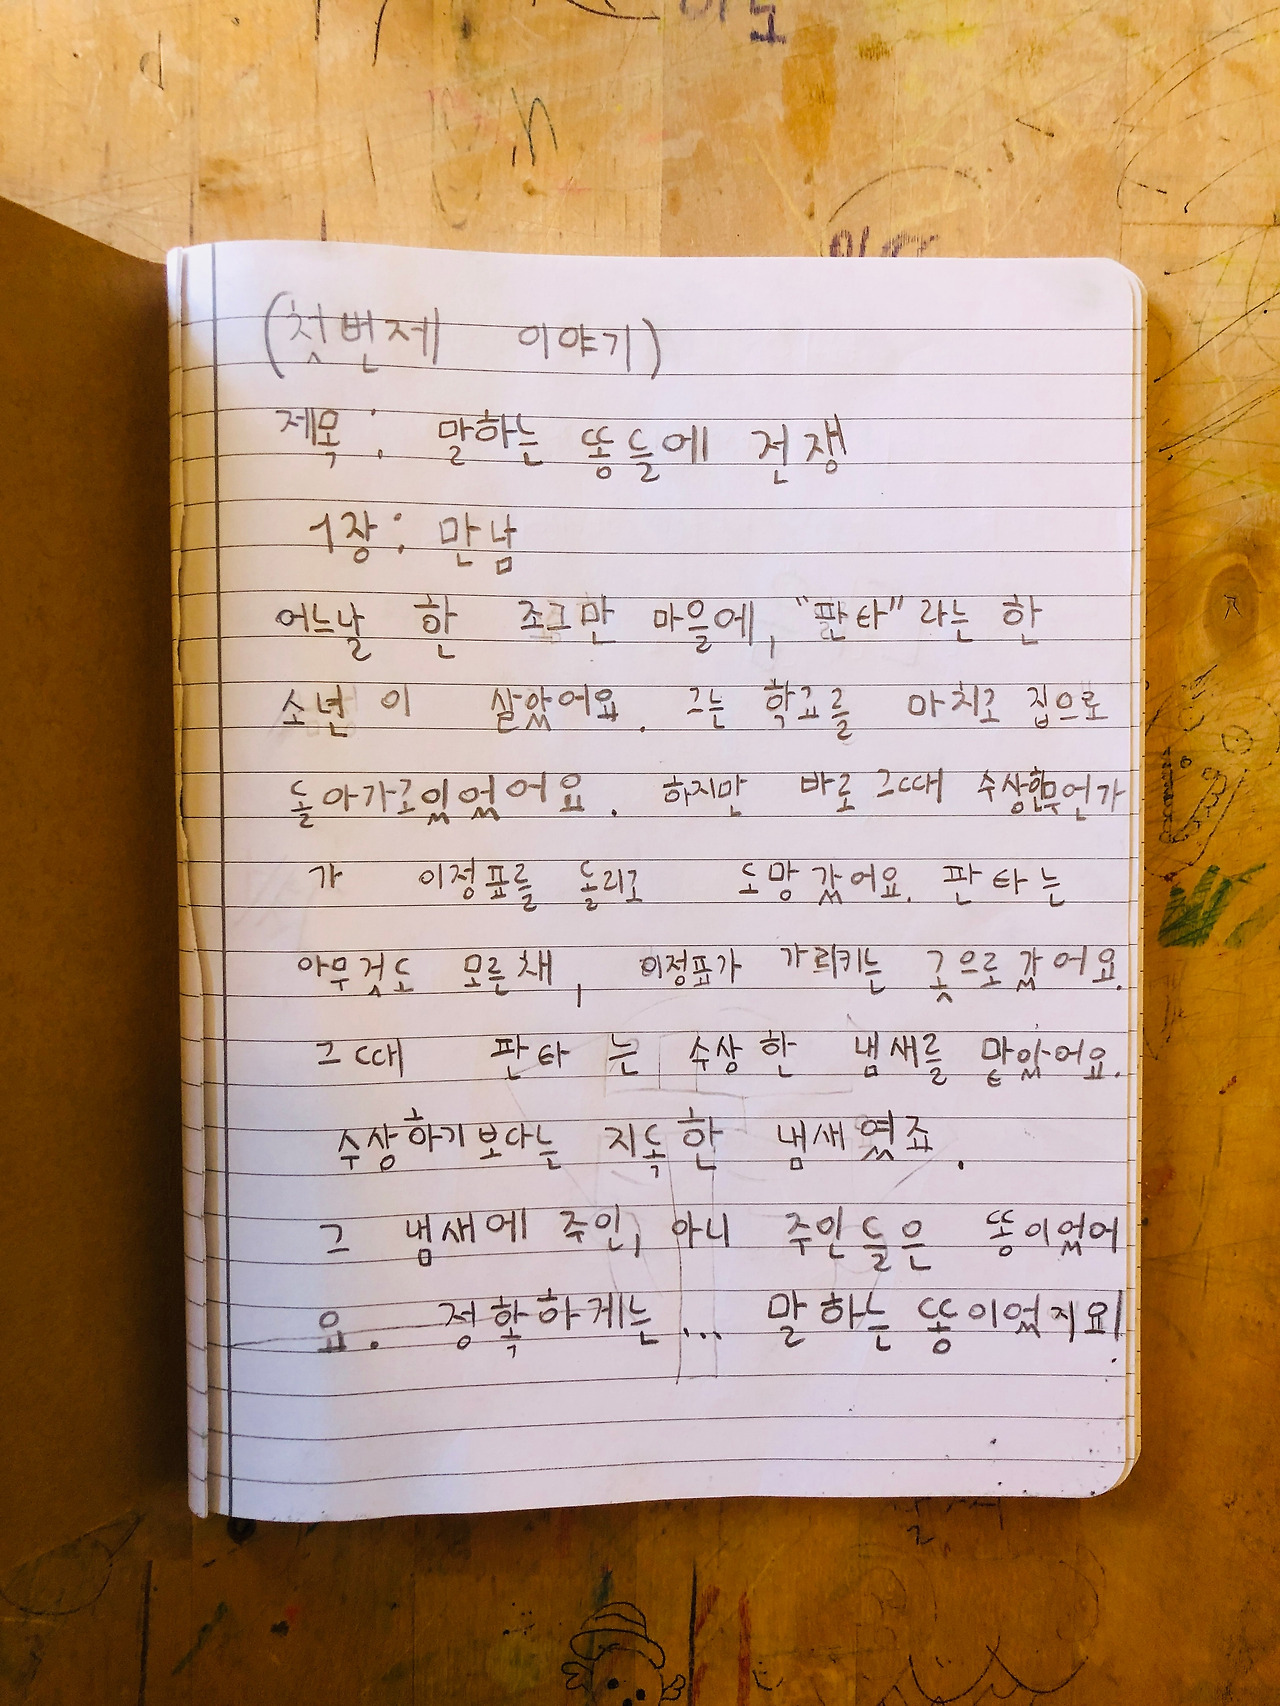 (첫번제 이야기)
제목: 말하는 똥들에 전쟁
1장: 만남
어느날 한 조그만 마을에, "판타"라는 한
소년이 살았어요. 그는 학교를 마치고 집으로
돌아가고있었어요. 하지만 바로 그때 수상한무언가
가 이정표를 돌리고 도망갔어요. 판타는
아무것도 모른채, 이정표가 가리키는 곳으로갔어요.
그때 판타는 수상한 냄새를 맡았어요.
수상하기보다는 지독한 냄새였죠.
그 냄새에 주인, 아니 주인들은 똥이었어
요. 정확하게는... 말하는 똥이었지요!